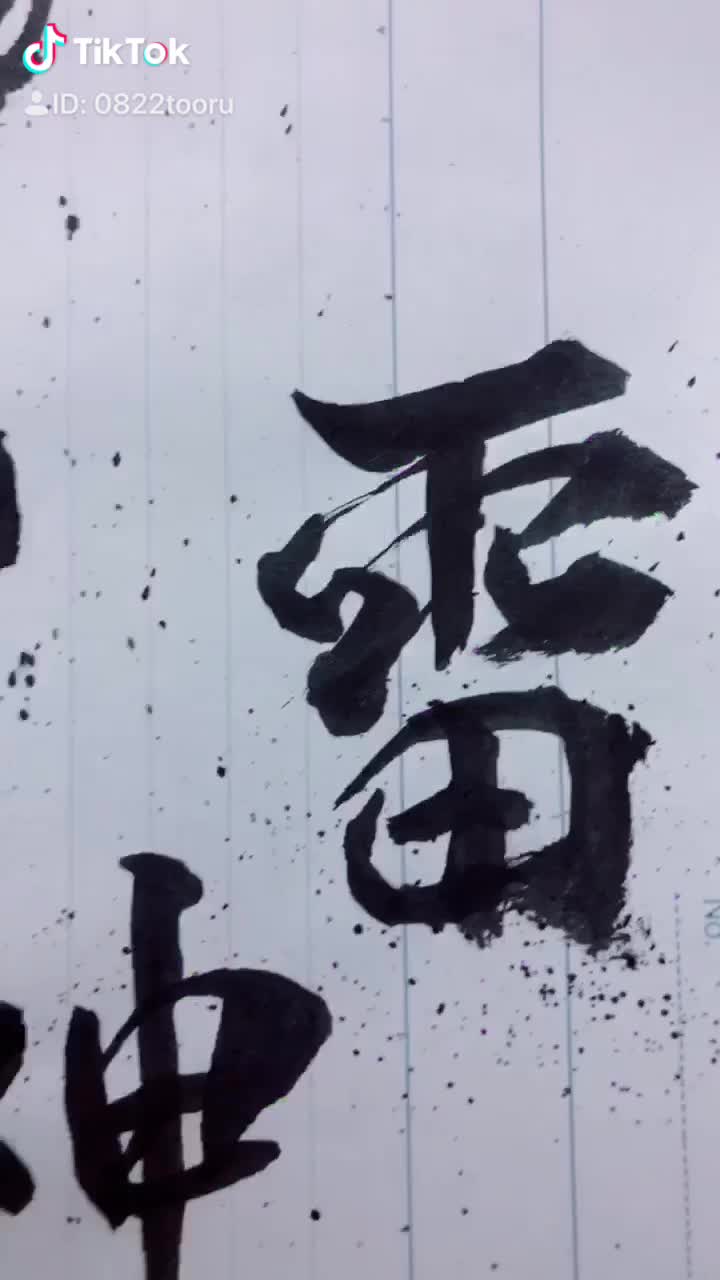 TikTok
ID: 0822tooru
雷
神
No.